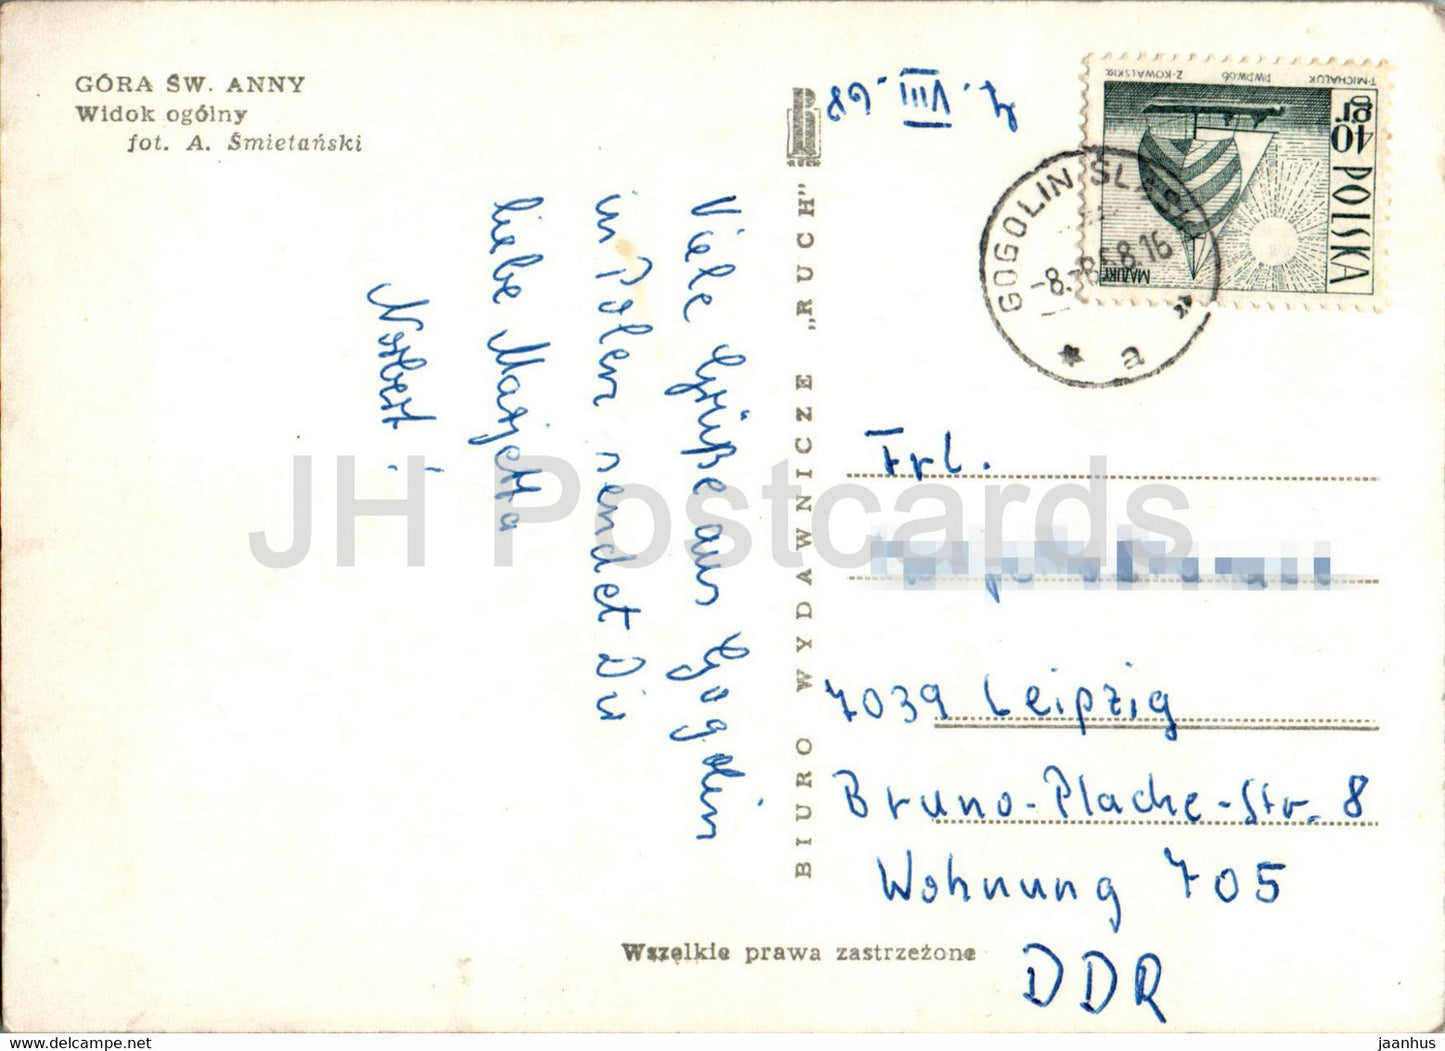 GÓRA ŚW. ANNY
Widok ogólny
fot. A. Śmietański
Viele Grüße aus Gogolin
in Polen sendet Dir
liebe Marjetta
Norbert!
BIURO WYDAWNICZE „RUCH”
7.VIII.68
40 gr POLSKA
MAZURY
T-MICHALUK PWPW66 Z-KOWALSKI
GOGOLIN ŚLĄSK
a
Frl.
7039 Leipzig
Bruno-Plache-Str. 8
Wohnung 705
DDR
Wszelkie prawa zastrzeżone
JH Postcards
jaanhus © www.delcampe.net